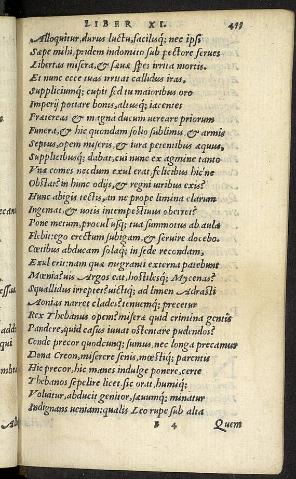 LIBER XI.
Alloquitur, durus luctu, facilusq; nec ipsi
Sæpe mihi, pridem indomito sub pectore serues
Libertas misera, & sæuæ spes irrita mortis.
Et nunc ecce tuas irruat callidus iras,
Suppliciumq; cupit sed tu maioribus oro
Imperij potiare bonis, aliusq; iacentes
Fratereas & magna ducum uereare priorum
Funera, & hic quondam solio sublimis, & armis
Septus, opem miseris, & iura petentibus æquus,
Supplicibusq; dabat, cui nunc ex agmine tanto
Vna comes necdum exul erat, felicibus hic'ne
Obstat? in hunc odijs, & regni uiribus exis?
Hunc abigis tectis, an ne prope limina clarum
Ingemat, & uotis intempestiuus oberret?
Pone metum, procul usq; tua summotus ab aula
Flebit: ego erectum subigam, & seruire docebo.
Cœtibus abducam solaq; in sede recondam,
Exul erit: nam quæ migranti externa patebunt
Mœnia? uis Argos eat, hostilesq; Mycenas?
Squallidus irrepet? uictiq; ad limen Adrasti
Aonias narret clades? tenuemq; precetur
Rex Thebanus opem? misera quid crimina gentis
Pandere, quid casus iuuat ostentare pudendos?
Conde precor quodcunq; sumus, nec longa precamur
Dona Creon, miserere senis, mœstiq; parentis
Hic precor, hic manes indulge ponere, certe
Thebanos sepelire licet. sic orat, humiq;
Voluitur, abducit genitor, sæuumq; minatur
Indignans ueniam: qualis Leo rupe sub alta
Quem